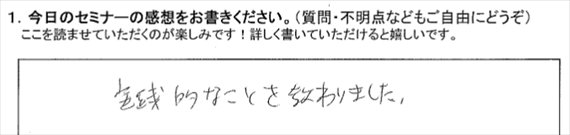 1. 今日のセミナーの感想をお書きください。(質問・不明点などもご自由にどうぞ)
ここを読ませていただくのが楽しみです!詳しく書いていただけると嬉しいです。
金銭的なことを教わりました。